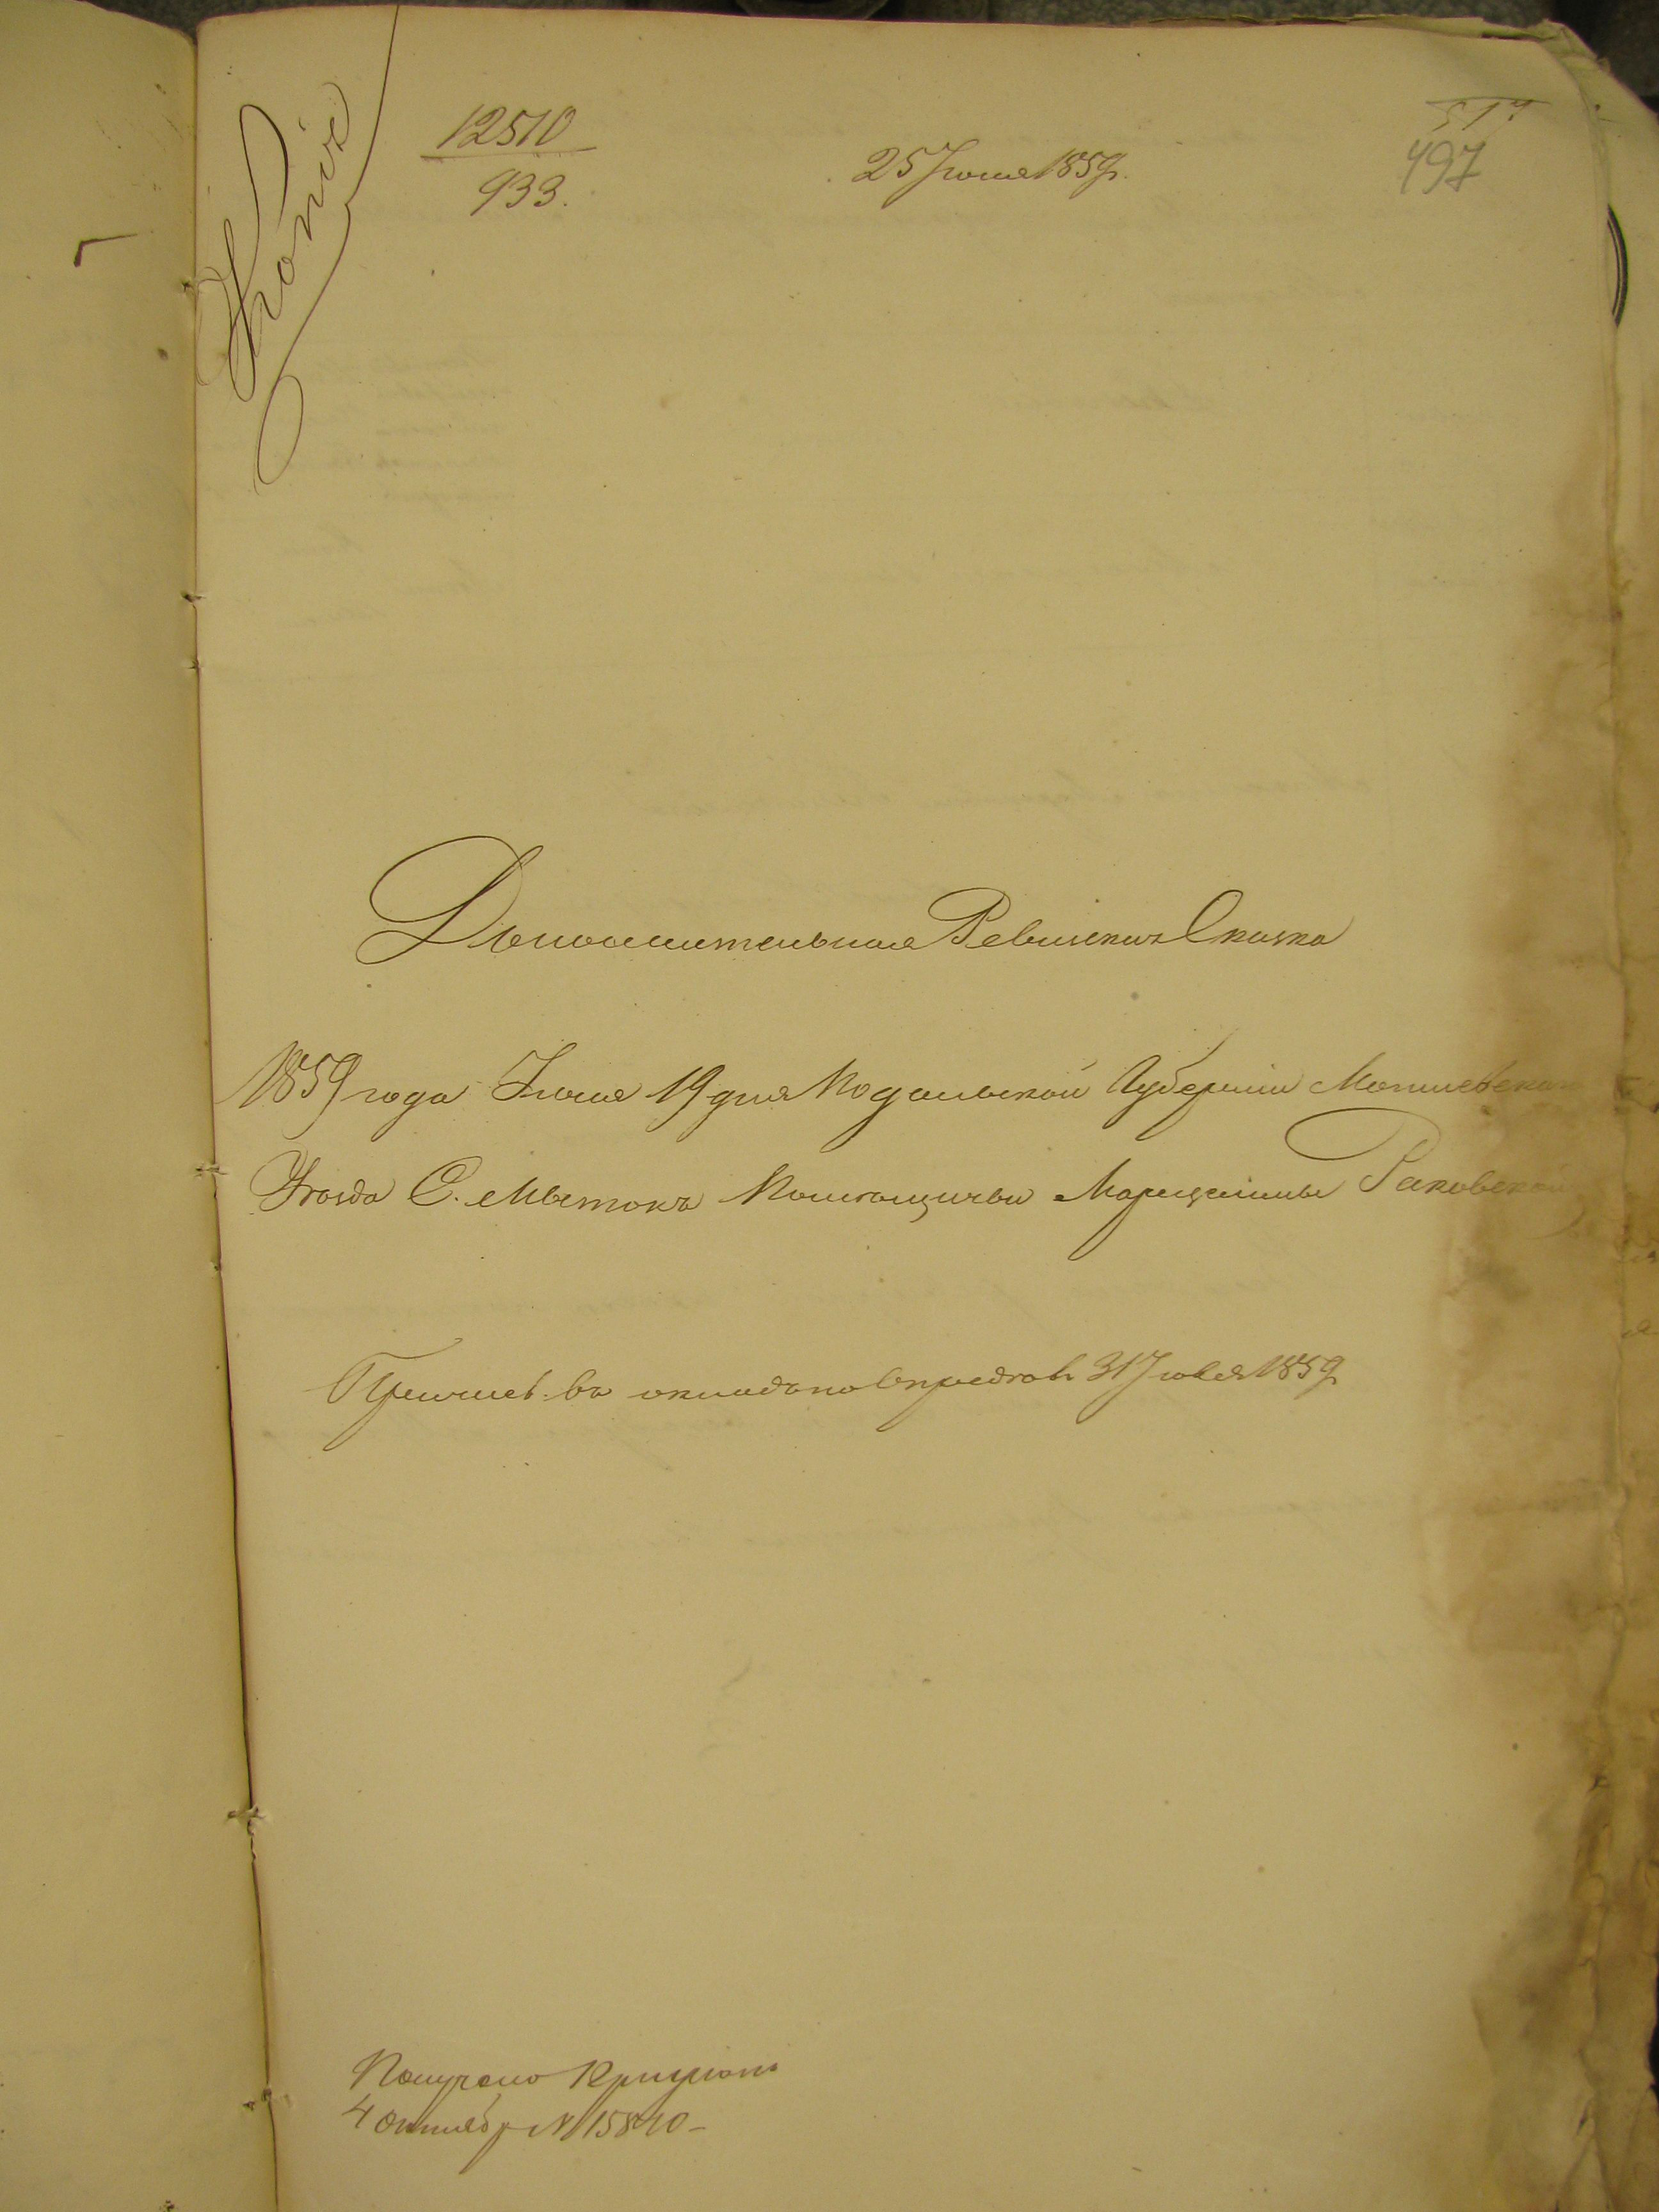 Копія
12510
933.
25 Іюня 1859 г.
517
497
Дополнительная Ревизская Сказка
1859 года Іюня 19 дня Подольской Губерніи Могилевскаго
Уѣзда С. Мытокъ Помѣщицы Марцелины Раковской
Причисл. въ окладъ по Опредѣл. 31 Іюля 1859 г.
Получено при
4 Октября № 15840 –